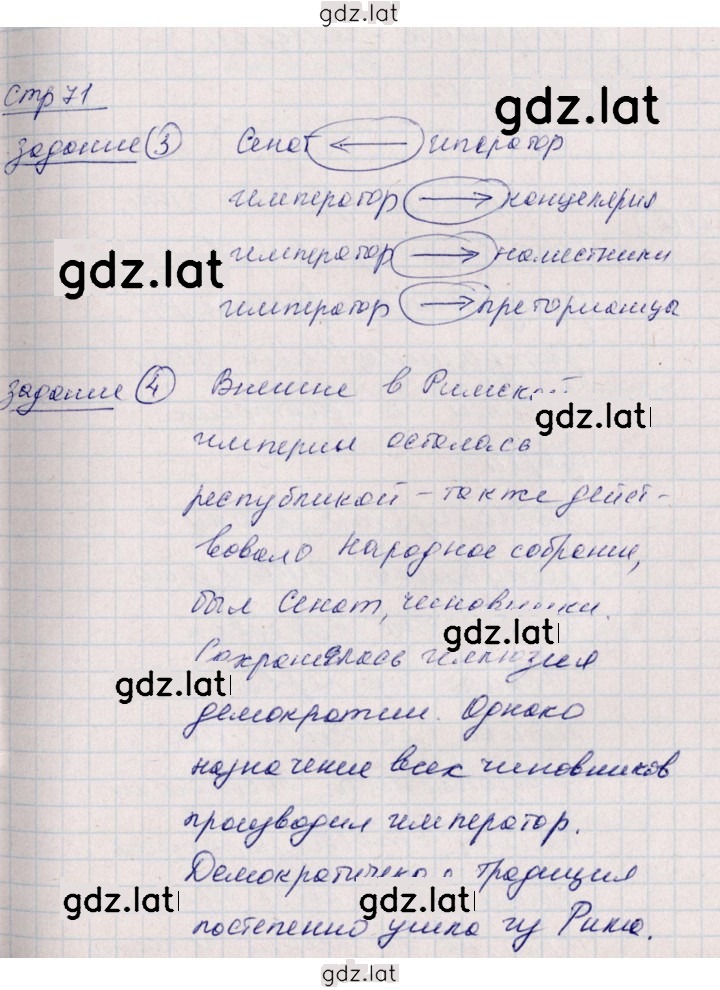 gdz.lat
стр 71
gdz.lat
задание 3 Сенат ← иператор
император → концелярия
император → наместники
gdz.lat
император → преторианцы
задание 4 Внешне в Римской
gdz.lat
империи осталась
республикой - также дейст-
вовало Народное собрание,
был Сенат, чиновники.
gdz.lat
Сохранялась иллюзия
gdz.lat
демократии. Однако
назначение всех чиновников
производил император.
Демократическая традиция
gdz.lat gdz.lat
постепенно ушла из Рима.
gdz.lat